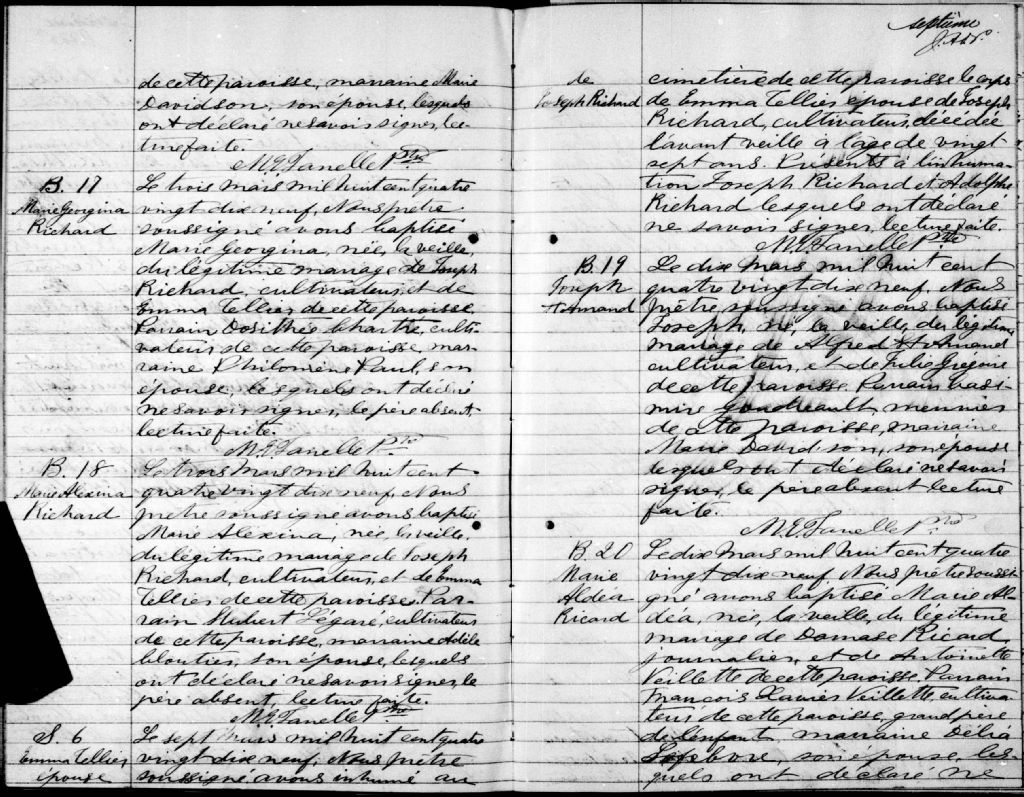 de cette paroisse, marraine Marie
Davidson, son épouse, lesquels
ont déclaré ne savoir signer, lec-
ture faite.
Ptre
B. 17
Marie Georgina
Richard
Le trois mars mil huit cent quatre
vingt dix neuf, Nous prêtre
soussigné avons baptisé
Marie Georgina, née, la veille,
du légitime mariage de Joseph
Richard, cultivateur, et de
Emma Tellier de cette paroisse.
Parrain Dosithée Chartré, culti-
vateur de cette paroisse, mar-
raine Philomène Paul, son
épouse, lesquels ont déclaré
ne savoir signer, le père absent,
lecture faite.
Ptre
B. 18
Marie Alexina
Richard
Le trois mars mil huit cent
quatre vingt dix neuf, Nous
prêtre soussigné avons baptisé
Marie Alexina, née, la veille,
du légitime mariage de Joseph
Richard, cultivateur, et de Emma
Tellier de cette paroisse. Par-
rain Hubert Légaré, cultivateur
de cette paroisse, marraine Adèle
Cloutier, son épouse, lesquels
ont déclaré ne savoir signer, le
père absent, lecture faite.
Ptre
S. 6
Emma Tellier
épouse
Le sept mars mil huit cent quatre
vingt dix neuf, Nous prêtre
soussigné avons inhumé au
septième
de
Joseph Richard
cimetière de cette paroisse le corps
de Emma Tellier épouse de Joseph
Richard, cultivateur, décédée
l'avant veille à l'age de vingt
sept ans. Présents à l'inhuma-
tion Joseph Richard et Adolphe
Richard lesquels ont déclaré
ne savoir signer, lecture faite.
Ptre
B. 19
Joseph
St Amand
Le dix mars mil huit cent
quatre vingt dix neuf, Nous
prêtre soussigné avons baptisé
Joseph, né, la veille, du légitime
mariage de Alfred St Amand
cultivateur, et de Julie Grégoire
de cette paroisse. Parrain Casi-
mire Goudreault, meunier
de cette paroisse, marraine
Marie Davidson, son épouse
lesquels ont déclaré ne savoir
signer, le père absent lecture
faite.
Ptre
B. 20
Marie
Aldéa
Ricard
Le dix mars mil huit cent quatre
vingt dix neuf, Nous prêtre soussi-
gné avons baptisé Marie Al-
déa, née, la veille, du légitime
mariage de Damase Ricard,
journalier, et de Antoinette
Veillette de cette paroisse. Parrain
François Xavier Veillette cultiva-
teur de cette paroisse, grand père
de l'enfant, marraine Délia
Lefebvre, son épouse, les-
quels ont déclaré ne